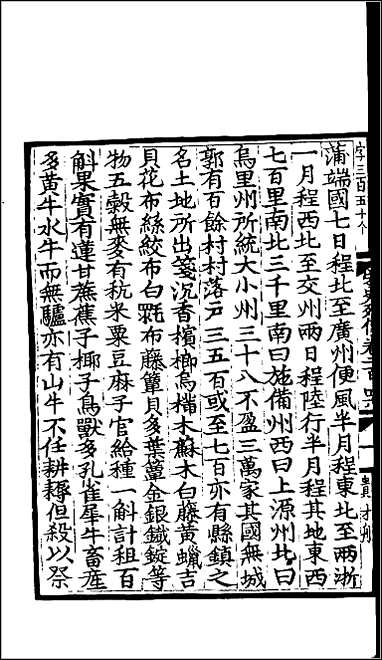 蒲端國七日程北至廣州便風半月程東北至兩浙
一月程西北至交州兩日程陸行半月程其地東西
七百里南北三千里南曰施備州西曰上源州北曰
烏里州所統大小州三十八不盈三萬家其國無城
郭有百餘村村落戸三五百或至七百亦有縣鎮之
名土地所出箋沉香檳榔烏樠木蘇木白藤黃蠟吉
貝花布絲絞布白㲲布藤簟貝多葉簟金銀鐵錠等
物五穀無麥有秔米粟豆麻子官給種一斛計租百
斛果實有蓮甘蔗蕉子椰子鳥獸多孔雀犀牛畜產
多黃牛水牛而無驢亦有山牛不任耕耨但殺以祭
字三百五十个